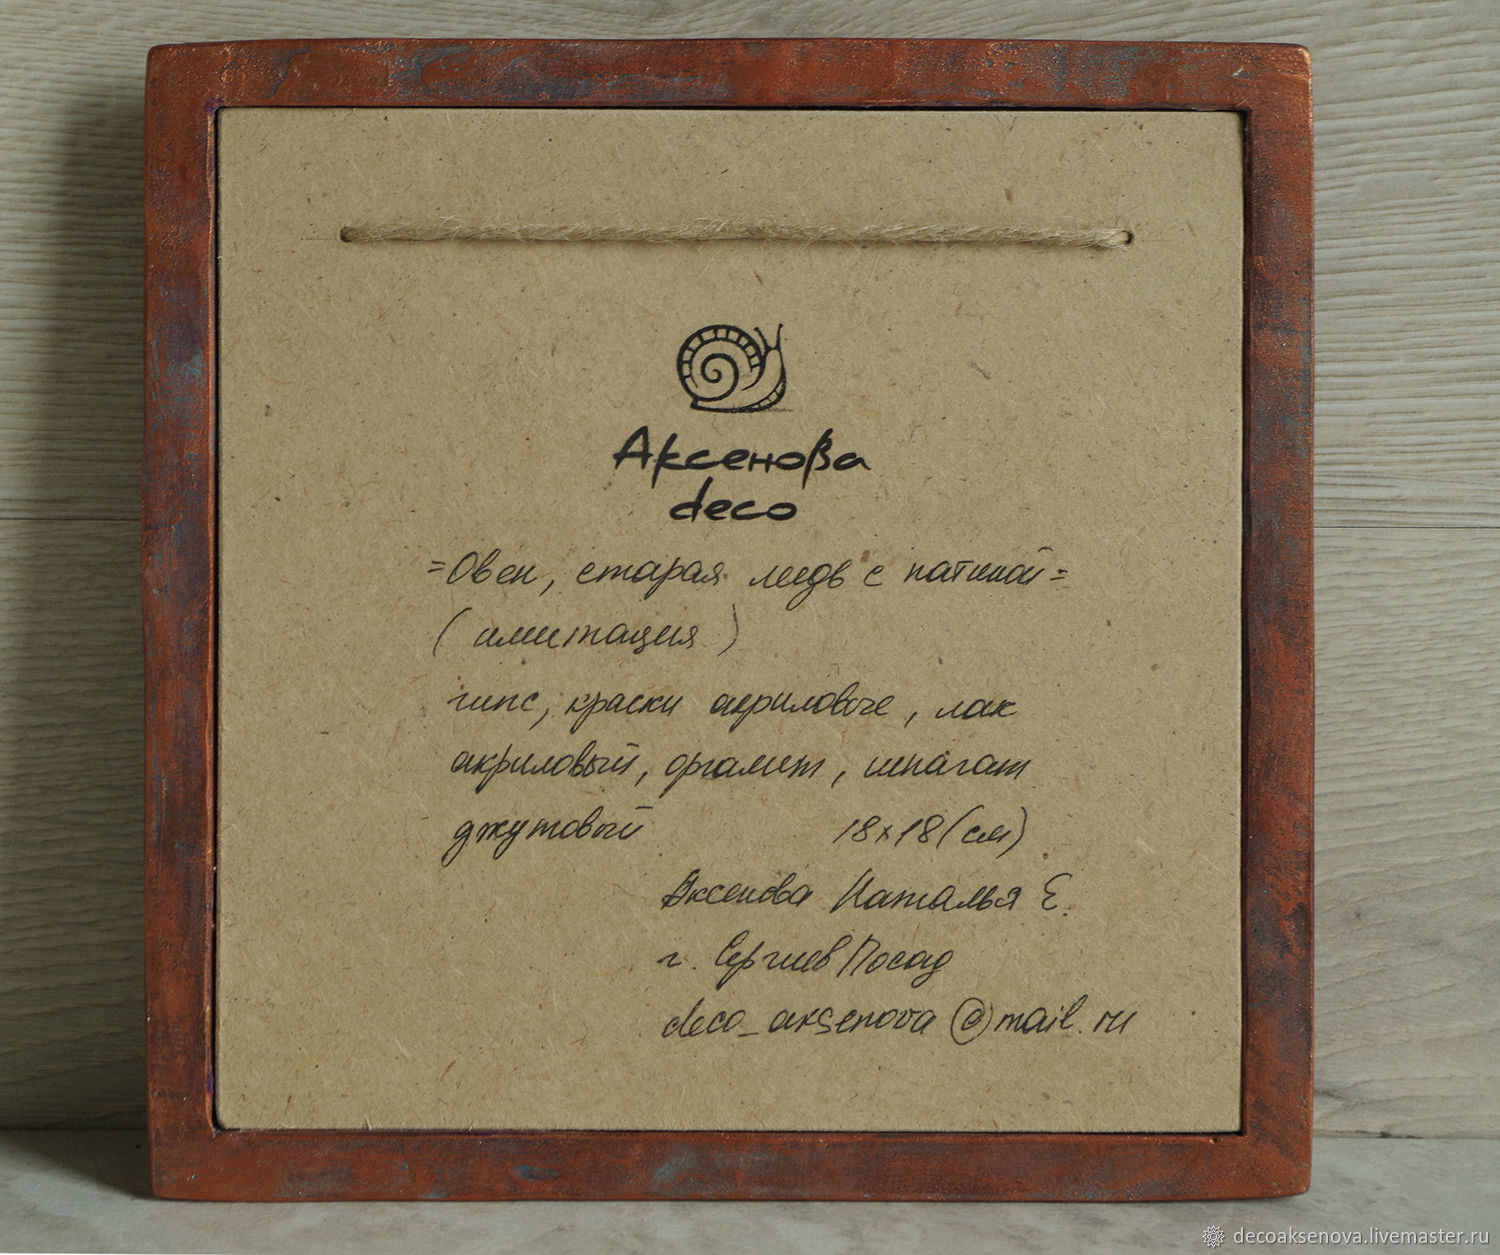 Аксенова
deco
=Овен, старая медь с патиной=
(имитация)
гипс, краски акриловые, лак
акриловый, оргалит, шпагат
джутовый 18х18(см)
Аксенова Наталья Е.
г. Сергиев Посад
deco_aksenova@mail.ru
decoaksenova.livemaster.ru